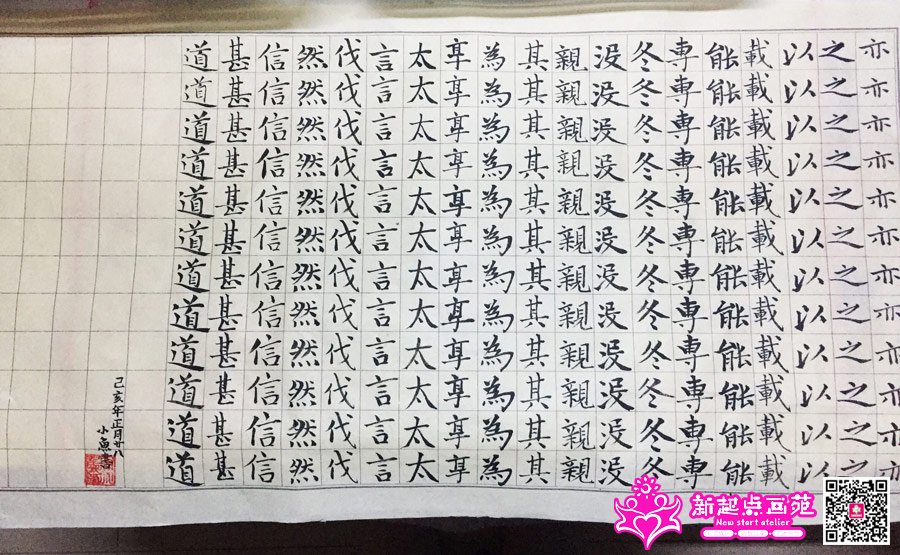 亦亦亦亦亦亦亦亦亦亦亦亦
之之之之之之之之之之之之
以以以以以以以以以以以以
載載載載載載載載載載載載
能能能能能能能能能能能能
専専専専専専専専専専専専
冬冬冬冬冬冬冬冬冬冬冬冬
没没没没没没没没没没没没
親親親親親親親親親親親親
其其其其其其其其其其其其
為為為為為為為為為為為為
享享享享享享享享享享享享
太太太太太太太太太太太太
言言言言言言言言言言言言
伐伐伐伐伐伐伐伐伐伐伐伐
然然然然然然然然然然然然
信信信信信信信信信信信信
甚甚甚甚甚甚甚甚甚甚甚甚
道道道道道道道道道道道道
己亥年正月廿八
小魚書
新起点画苑
New start atelier